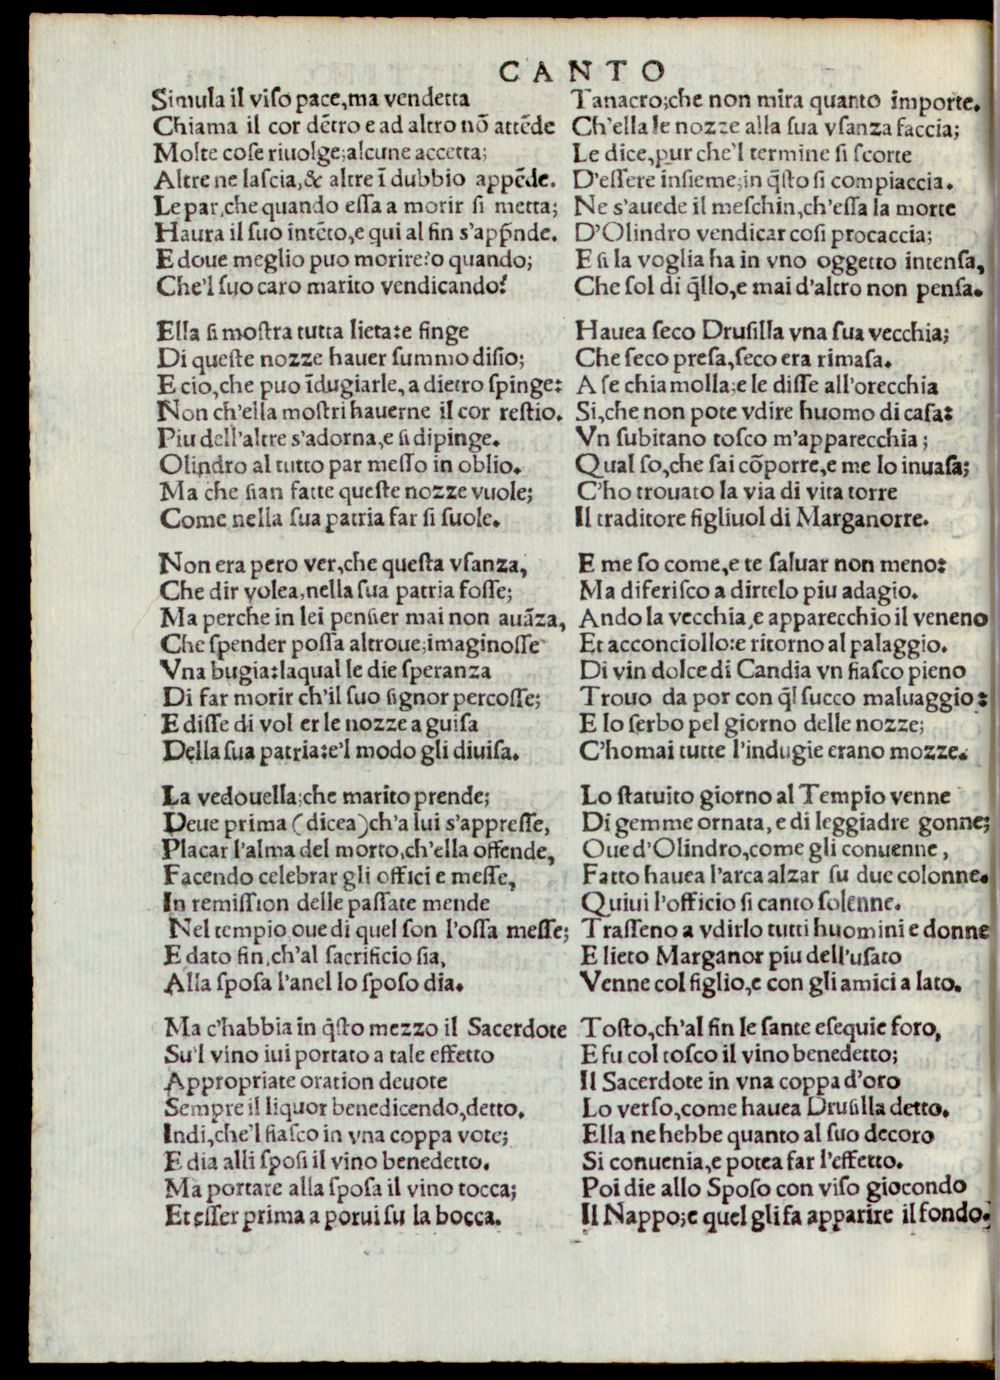 CANTO
Simula il viso pace, ma vendetta
Chiama il cor dētro e ad altro nō attēde
Molte cose riuolge; alcune accetta;
Altre ne lascia, & altre ī dubbio appēde.
Le par, che quando essa a morir si metta;
Haura il suo intēto, e qui al fin s'app̄nde.
E doue meglio puo morire? o quando;
Che'l suo caro marito vendicando?
Ella si mostra tutta lieta: e finge
Di queste nozze hauer summo disio;
E cio, che puo īdugiarle, a dietro spinge:
Non ch'ella mostri hauerne il cor restio.
Piu dell'altre s'adorna, e si dipinge.
Olindro al tutto par messo in oblio.
Ma che sian fatte queste nozze vuole;
Come nella sua patria far si suole.
Non era pero ver, che questa vsanza,
Che dir volea, nella sua patria fosse;
Ma perche in lei pensier mai non auāza,
Che spender possa altroue; imaginosse
Vna bugia: laqual le die speranza
Di far morir ch'il suo signor percosse;
E disse di vol er le nozze a guisa
Della sua patria: e'l modo gli diuisa.
La vedouella; che marito prende;
Deue prima (dicea) ch'a lui s'appresse,
Placar l'alma del morto, ch'ella offende,
Facendo celebrar gli offici e messe,
In remission delle passate mende
Nel tempio oue di quel son l'ossa messe;
E dato fin, ch'al sacrificio sia,
Alla sposa l'anel lo sposo dia.
Ma c'habbia in q̄sto mezzo il Sacerdote
Su'l vino iui portato a tale effetto
Appropriate oration deuote
Sempre il liquor benedicendo, detto.
Indi, che'l fiasco in vna coppa vote;
E dia alli sposi il vino benedetto.
Ma portare alla sposa il vino tocca;
Et esser prima a porui su la bocca.
Tanacro; che non mira quanto importe.
Ch'ella le nozze alla sua vsanza faccia;
Le dice, pur che'l termine si scorte
D'essere insieme, in q̄sto si compiaccia.
Ne s'auede il meschin, ch'essa la morte
D'Olindro vendicar cosi procaccia;
E si la voglia ha in vno oggetto intensa,
Che sol di q̄llo, e mai d'altro non pensa.
Hauea seco Drusilla vna sua vecchia;
Che seco presa, seco era rimasa.
A se chiamolla; e le disse all'orecchia
Si, che non pote vdire huomo di casa:
Vn subitano tosco m'apparecchia;
Qual so, che sai cōporre, e me lo inuasa;
C'ho trouato la via di vita torre
Il traditore figliuol di Marganorre.
E me so come, e te saluar non meno:
Ma diferisco a dirtelo piu adagio.
Ando la vecchia, e apparecchio il veneno
Et acconciollo: e ritorno al palaggio.
Di vin dolce di Candia vn fiasco pieno
Trouo da por con q̄l succo maluaggio:
E lo serbo pel giorno delle nozze;
C'homai tutte l'indugie erano mozze.
Lo statuito giorno al Tempio venne
Di gemme ornata, e di leggiadre gonne;
Oue d'Olindro, come gli conuenne,
Fatto hauea l'arca alzar su due colonne.
Quiui l'officio si canto solenne.
Trasseno a vdirlo tutti huomini e donne
E lieto Marganor piu dell'usato
Venne col figlio, e con gli amici a lato.
Tosto, ch'al fin le sante esequie foro,
E fu col tosco il vino benedetto;
Il Sacerdote in vna coppa d'oro
Lo verso, come hauea Drusilla detto.
Ella ne hebbe quanto al suo decoro
Si conuenia, e potea far l'effetto.
Poi die allo Sposo con viso giocondo
Il Nappo; e quel gli fa apparire il fondo.